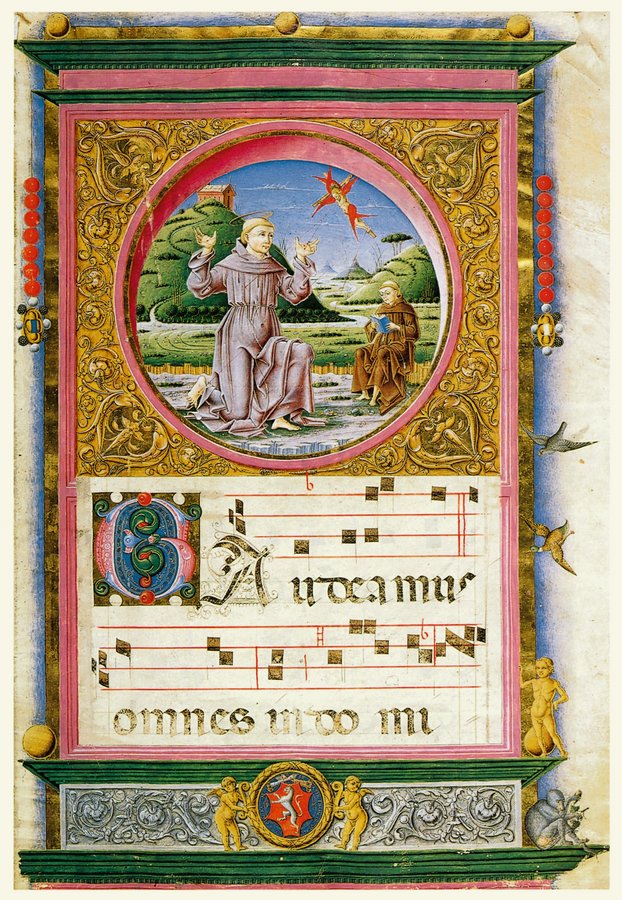 GAudeamus
omnes in do mi